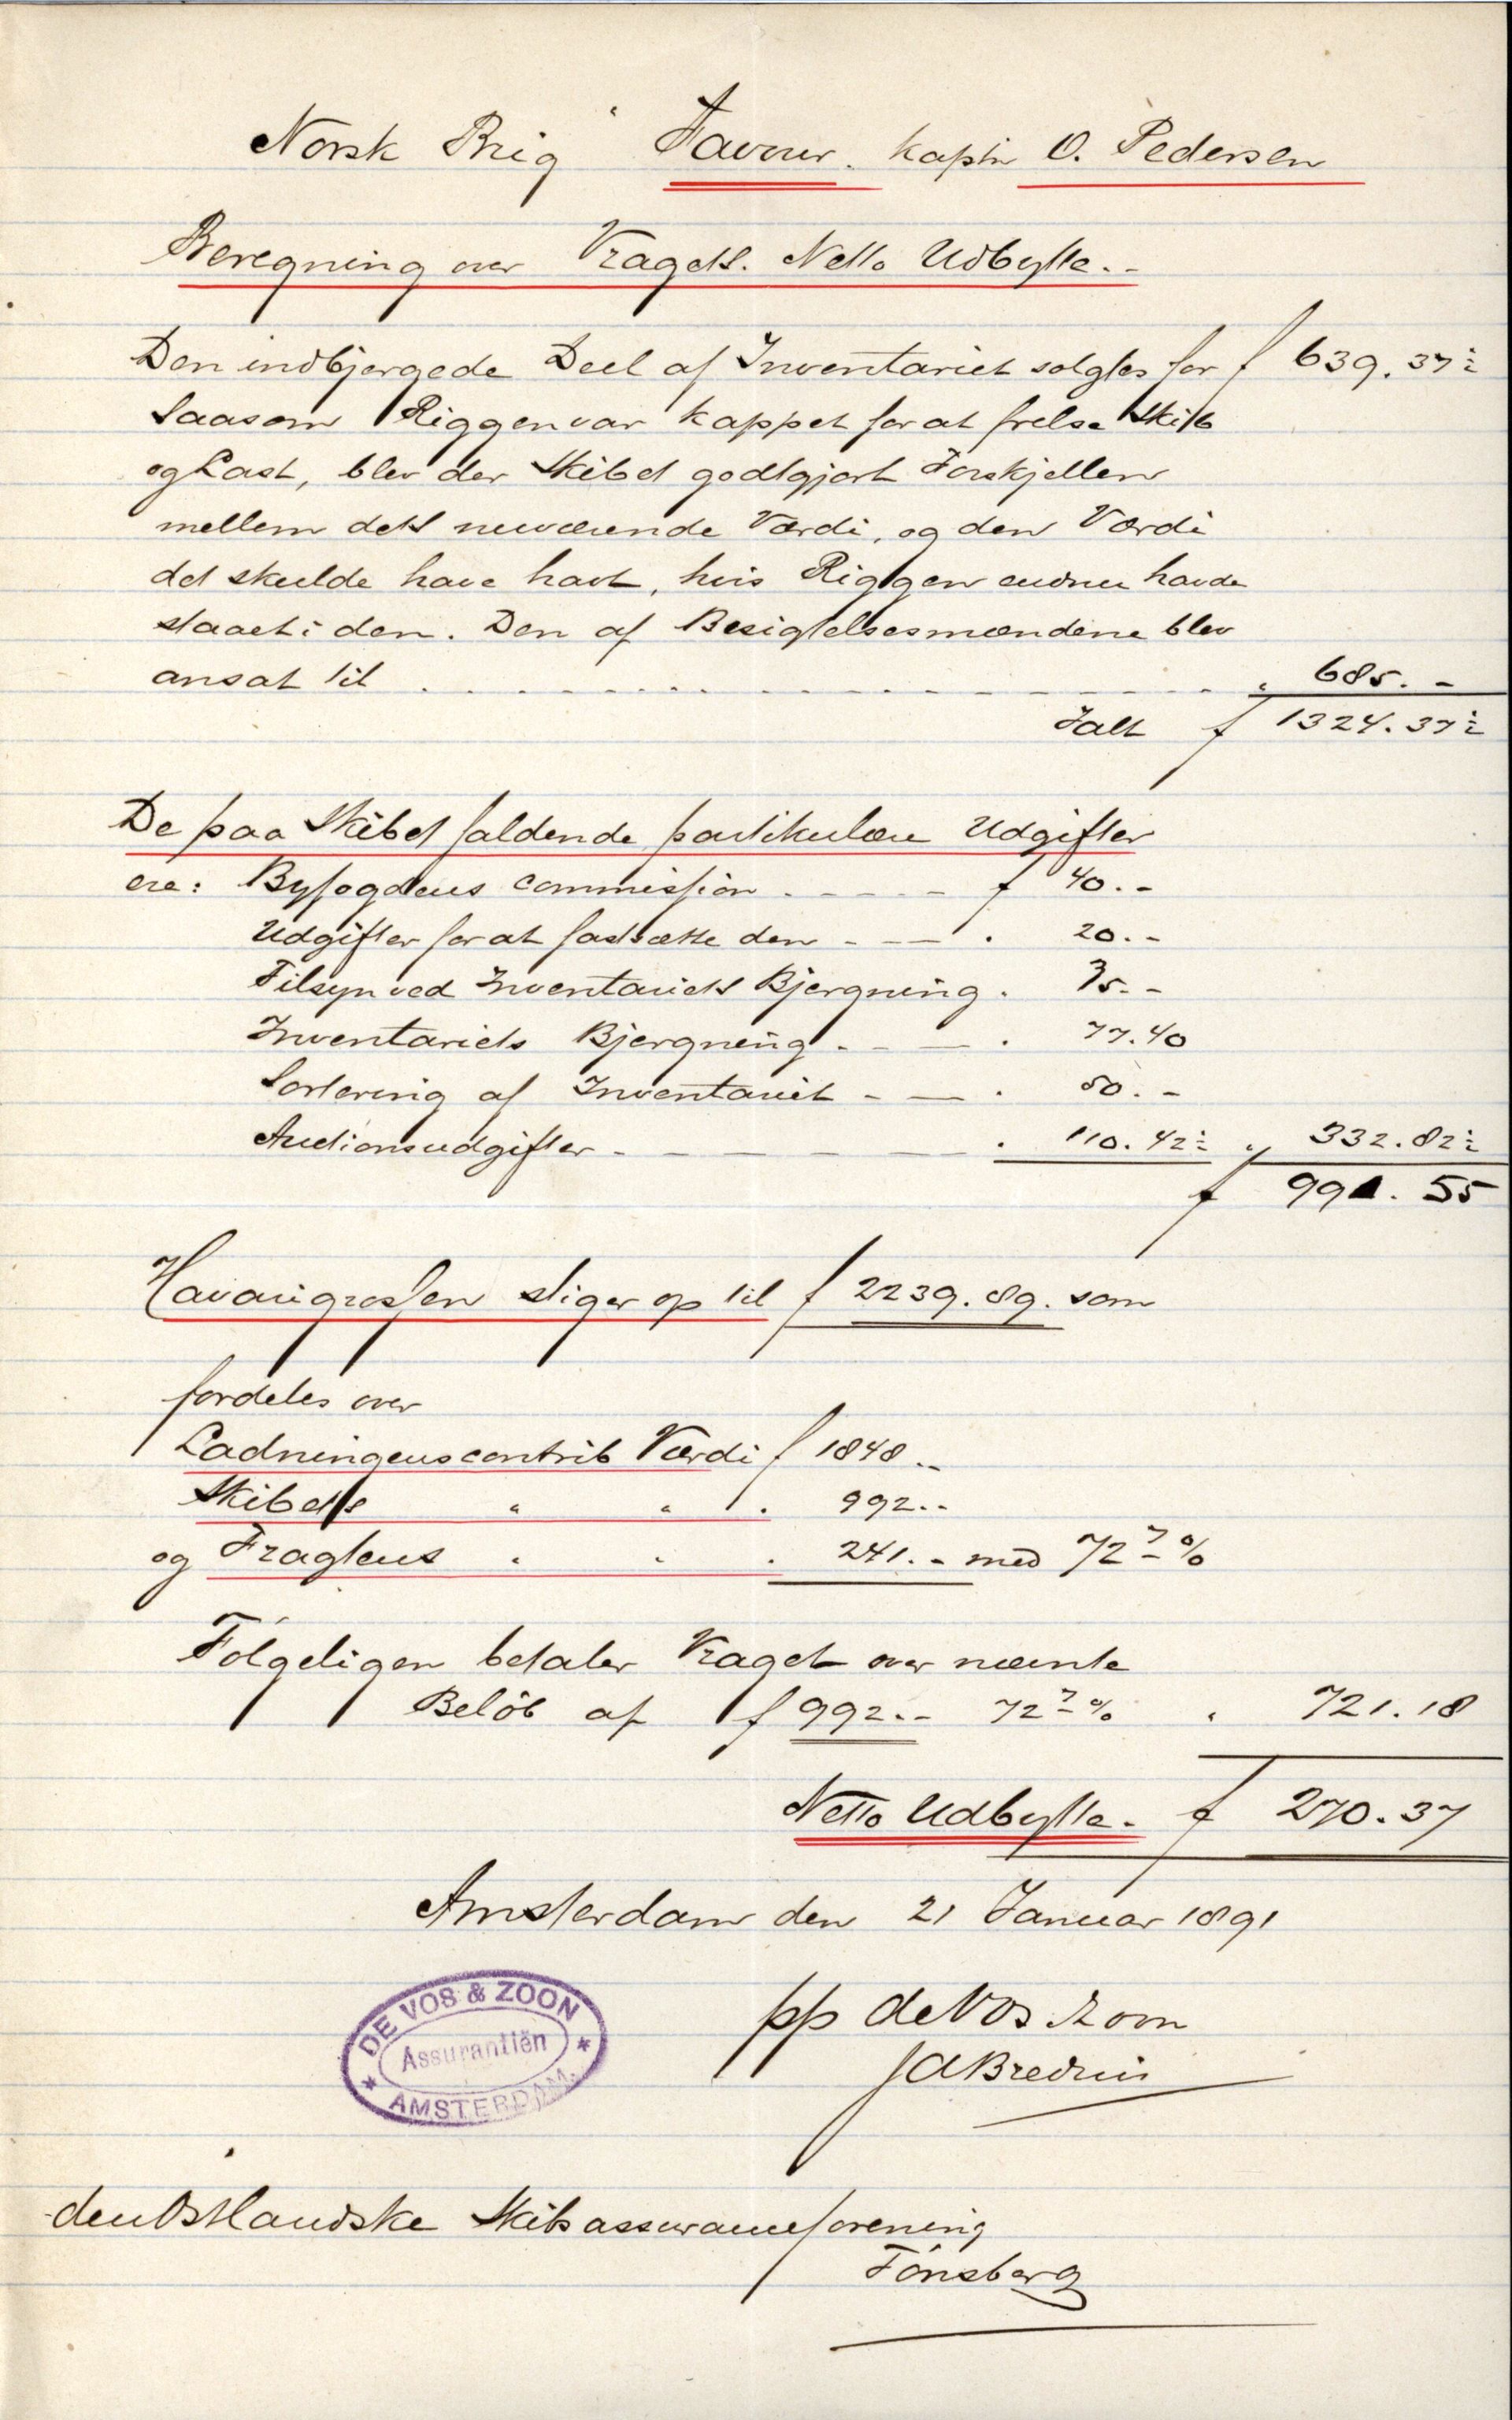 Norsk Brig "Favour. kaptn O. Pedersen
Beregning over Vragets. Netto Udbytte.-
Den indbjergede Deel af Inventariet solgtes for f 639.37½
Saasom Riggen var kappet for at frelse Skib
og Last, blev der Skibet godtgjort Forskjellen
mellem dets nuværende Værdi, og den Værdi
det skulde have havt, hvis Riggen endnu havde
staaet i den. Den af Besigtelsesmændene blev
ansat til . . . . . . . . . . . . " 685.-
Ialt f 1324.37½
De paa Skibet faldende partikulære Udgifter
ere: Byfogdens Commission . - - - - f 40.-
Udgifter for at fastsætte den - - — . 20.-
Tilsyn ved Inventariets Bjergning . 35.-
Inventariets Bjergning . - — . 77.40
Sortering af Inventariet - — . 50.-
Auctionsudgifter - — — — . 110.42½ " 332.82½
f 991.55
Havarigrossen stiger op til f 2239.89. som
fordeles over
Ladningens contrib Værdi f 1848.-
Skibets " " . 992.-
og Fragtens " " . 241.- med 72 7/- %
Følgeligen betaler Vraget over nævnte
Beløb af f 992.- 72 7/- % " 721.18
Netto Udbytte. f 270.37
Amsterdam den 21 Januar 1891
DE VOS & ZOON
Assurantiën
AMSTERDAM.
pp de Vos & Zoon
den Østlandske Skibsassuranceforening
Tönsberg